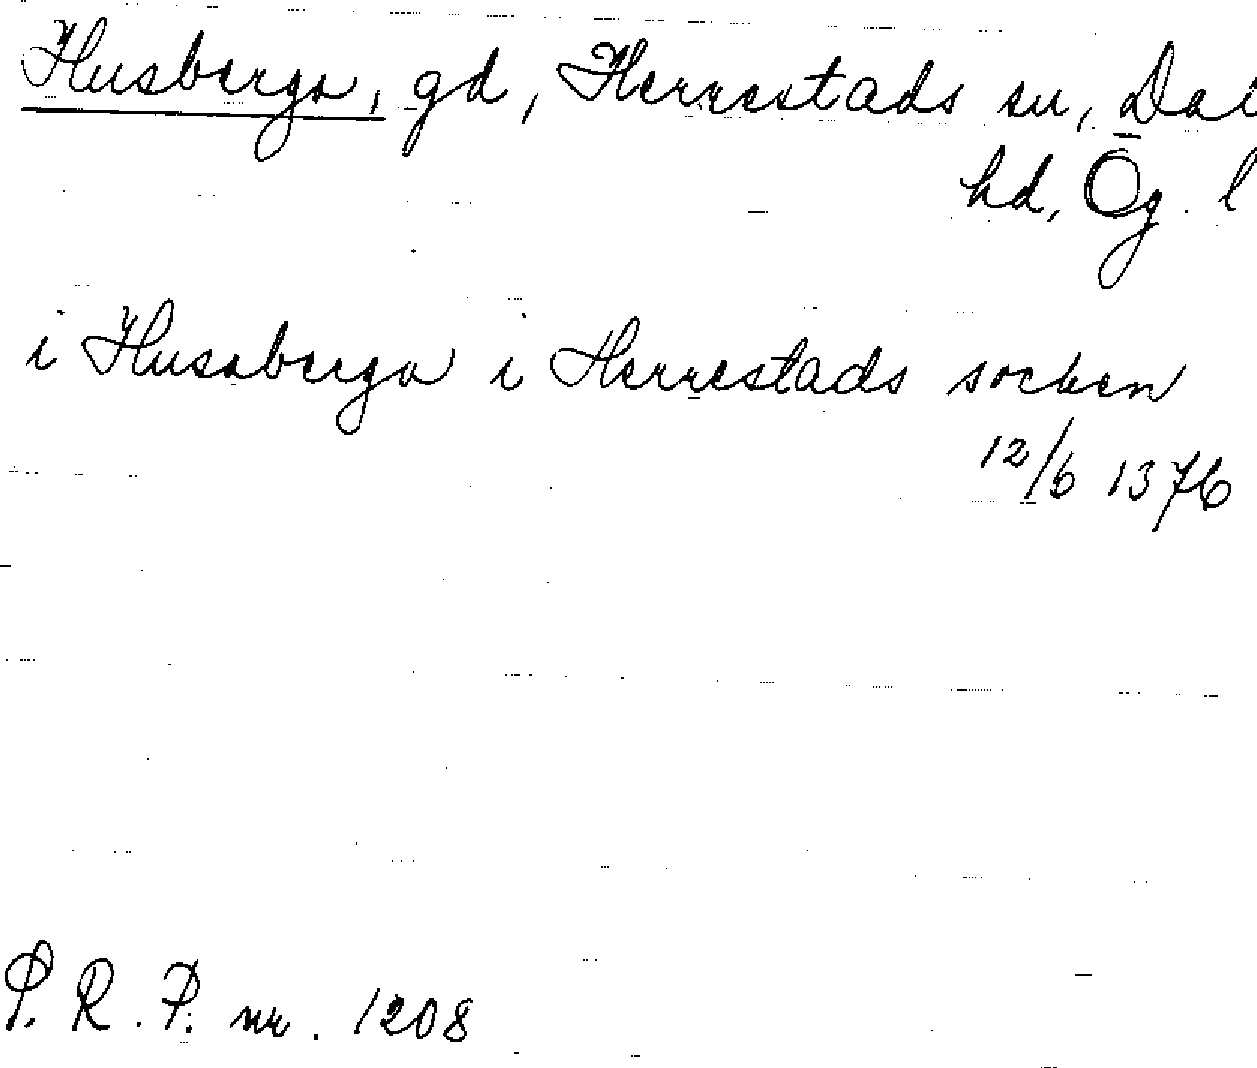 Husberga, gd, Herrestads sn, Dal
hd, Ög. l
i Husaberga i Herrestads socken
12/6 1376
P. R. P. nr. 1208